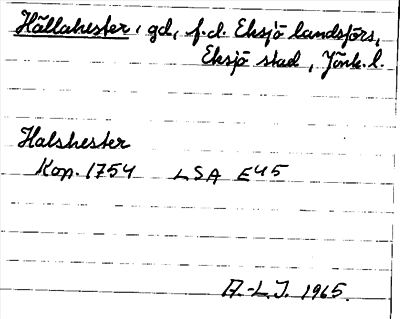 Hällahester, gd, f.d. Eksjö landsförs,
Eksjö stad, Jönk.l.
Halshester
Kop. 1754 LSA E45
A.-L.J. 1965.